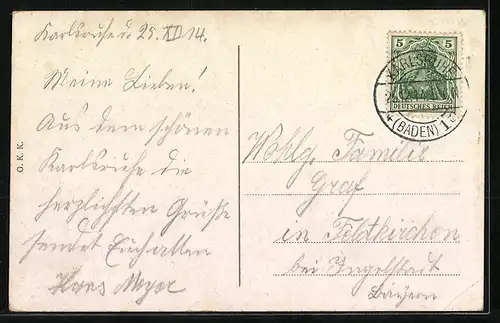 Karlsruhe d. 25. XII 14.
Meine Lieben!
Aus dem schönen
Karlsruhe die
herzlichsten Grüße
sendet Euch allen
Hans Meyer
O. K. K.
5 5
DEUTSCHES REICH
KARLSRUHE
(BADEN) 1
Wohlg. Familie
Graf
in Feldkirchen
bei Ingolstadt
Bayern